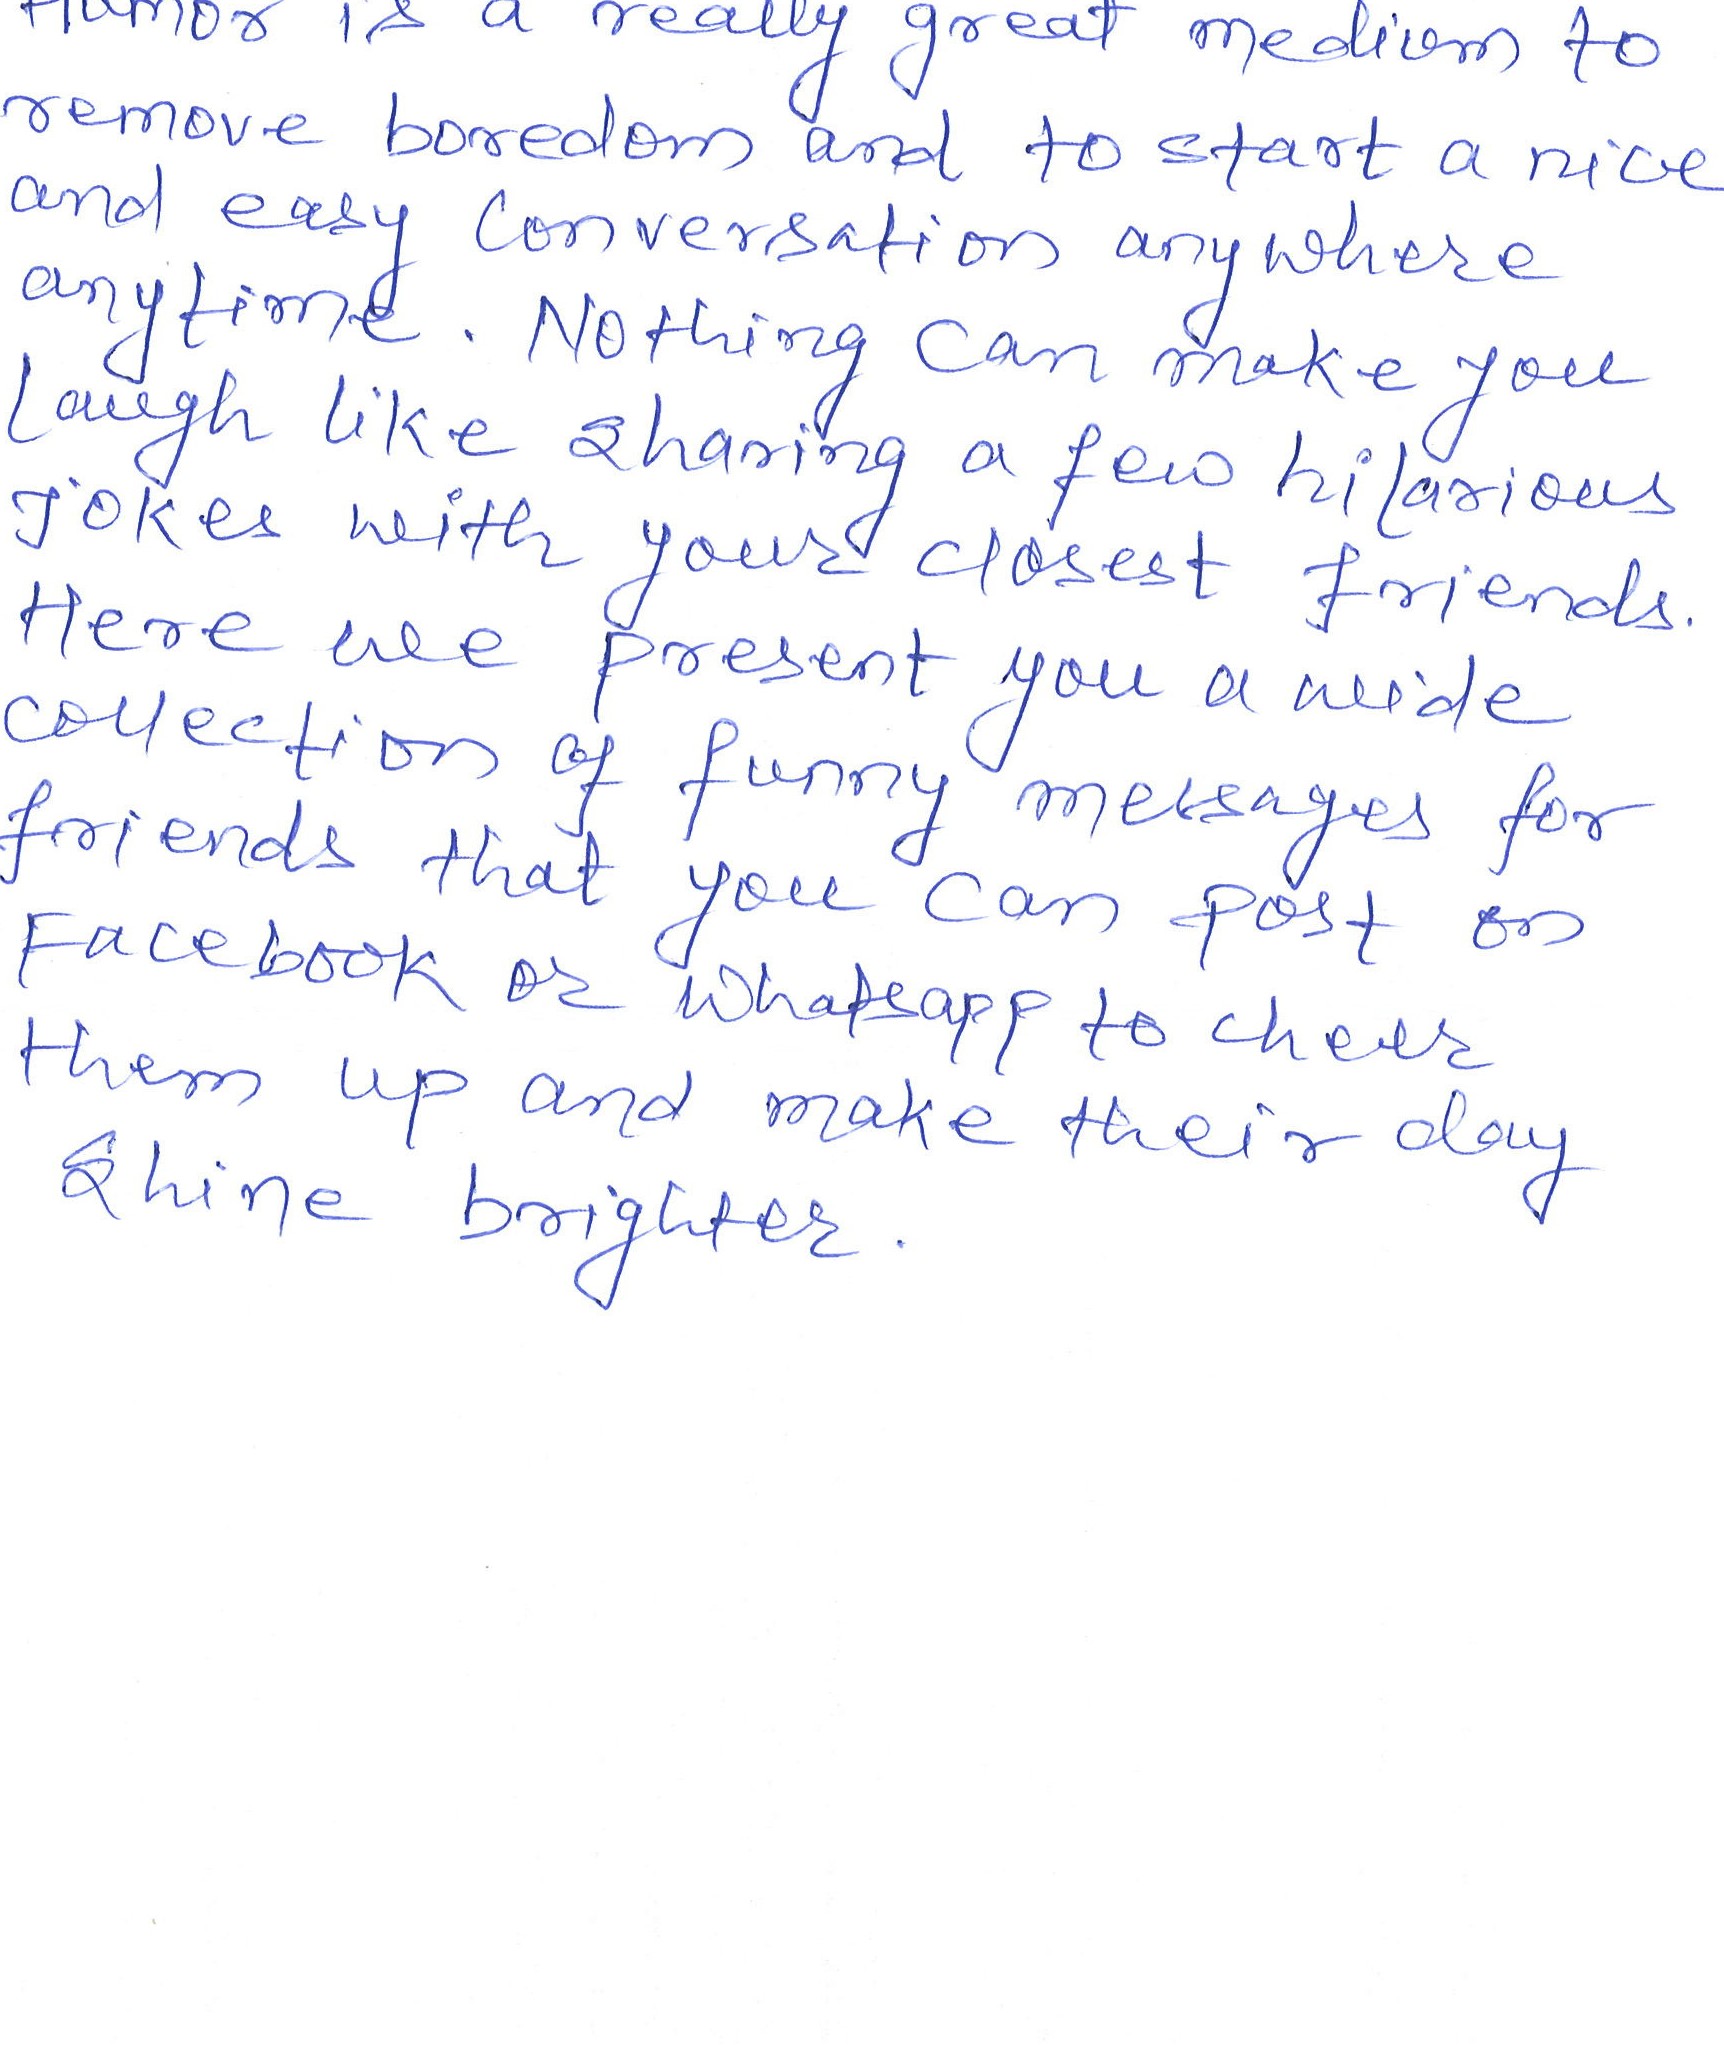 Humor is a really great medium to
remove boredom and to start a nice
and easy conversation anywhere
anytime. Nothing can make you
laugh like sharing a few hilarious
Jokes with your closest friends.
Here we present you a wide
collection of funny messages for
friends that you can post on
Facebook or Whatsapp to cheer
them up and make their day
Shine brighter.